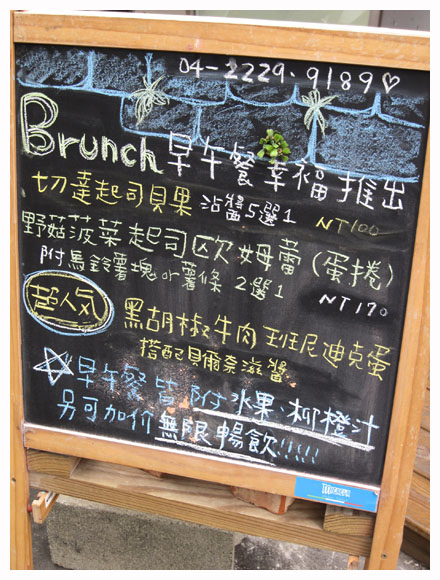 04-2229-9189♡
Brunch 早午餐幸福推出
切達起司貝果 沾醬5選1 NT100
野菇菠菜起司歐姆蕾(蛋捲)
附馬鈴薯塊or薯條 2選1 NT170
超人気 黑胡椒牛肉班尼迪克蛋
搭配貝爾奈滋醬
☆早午餐皆附水果.柳橙汁
另可加价無限暢飲!!!!!